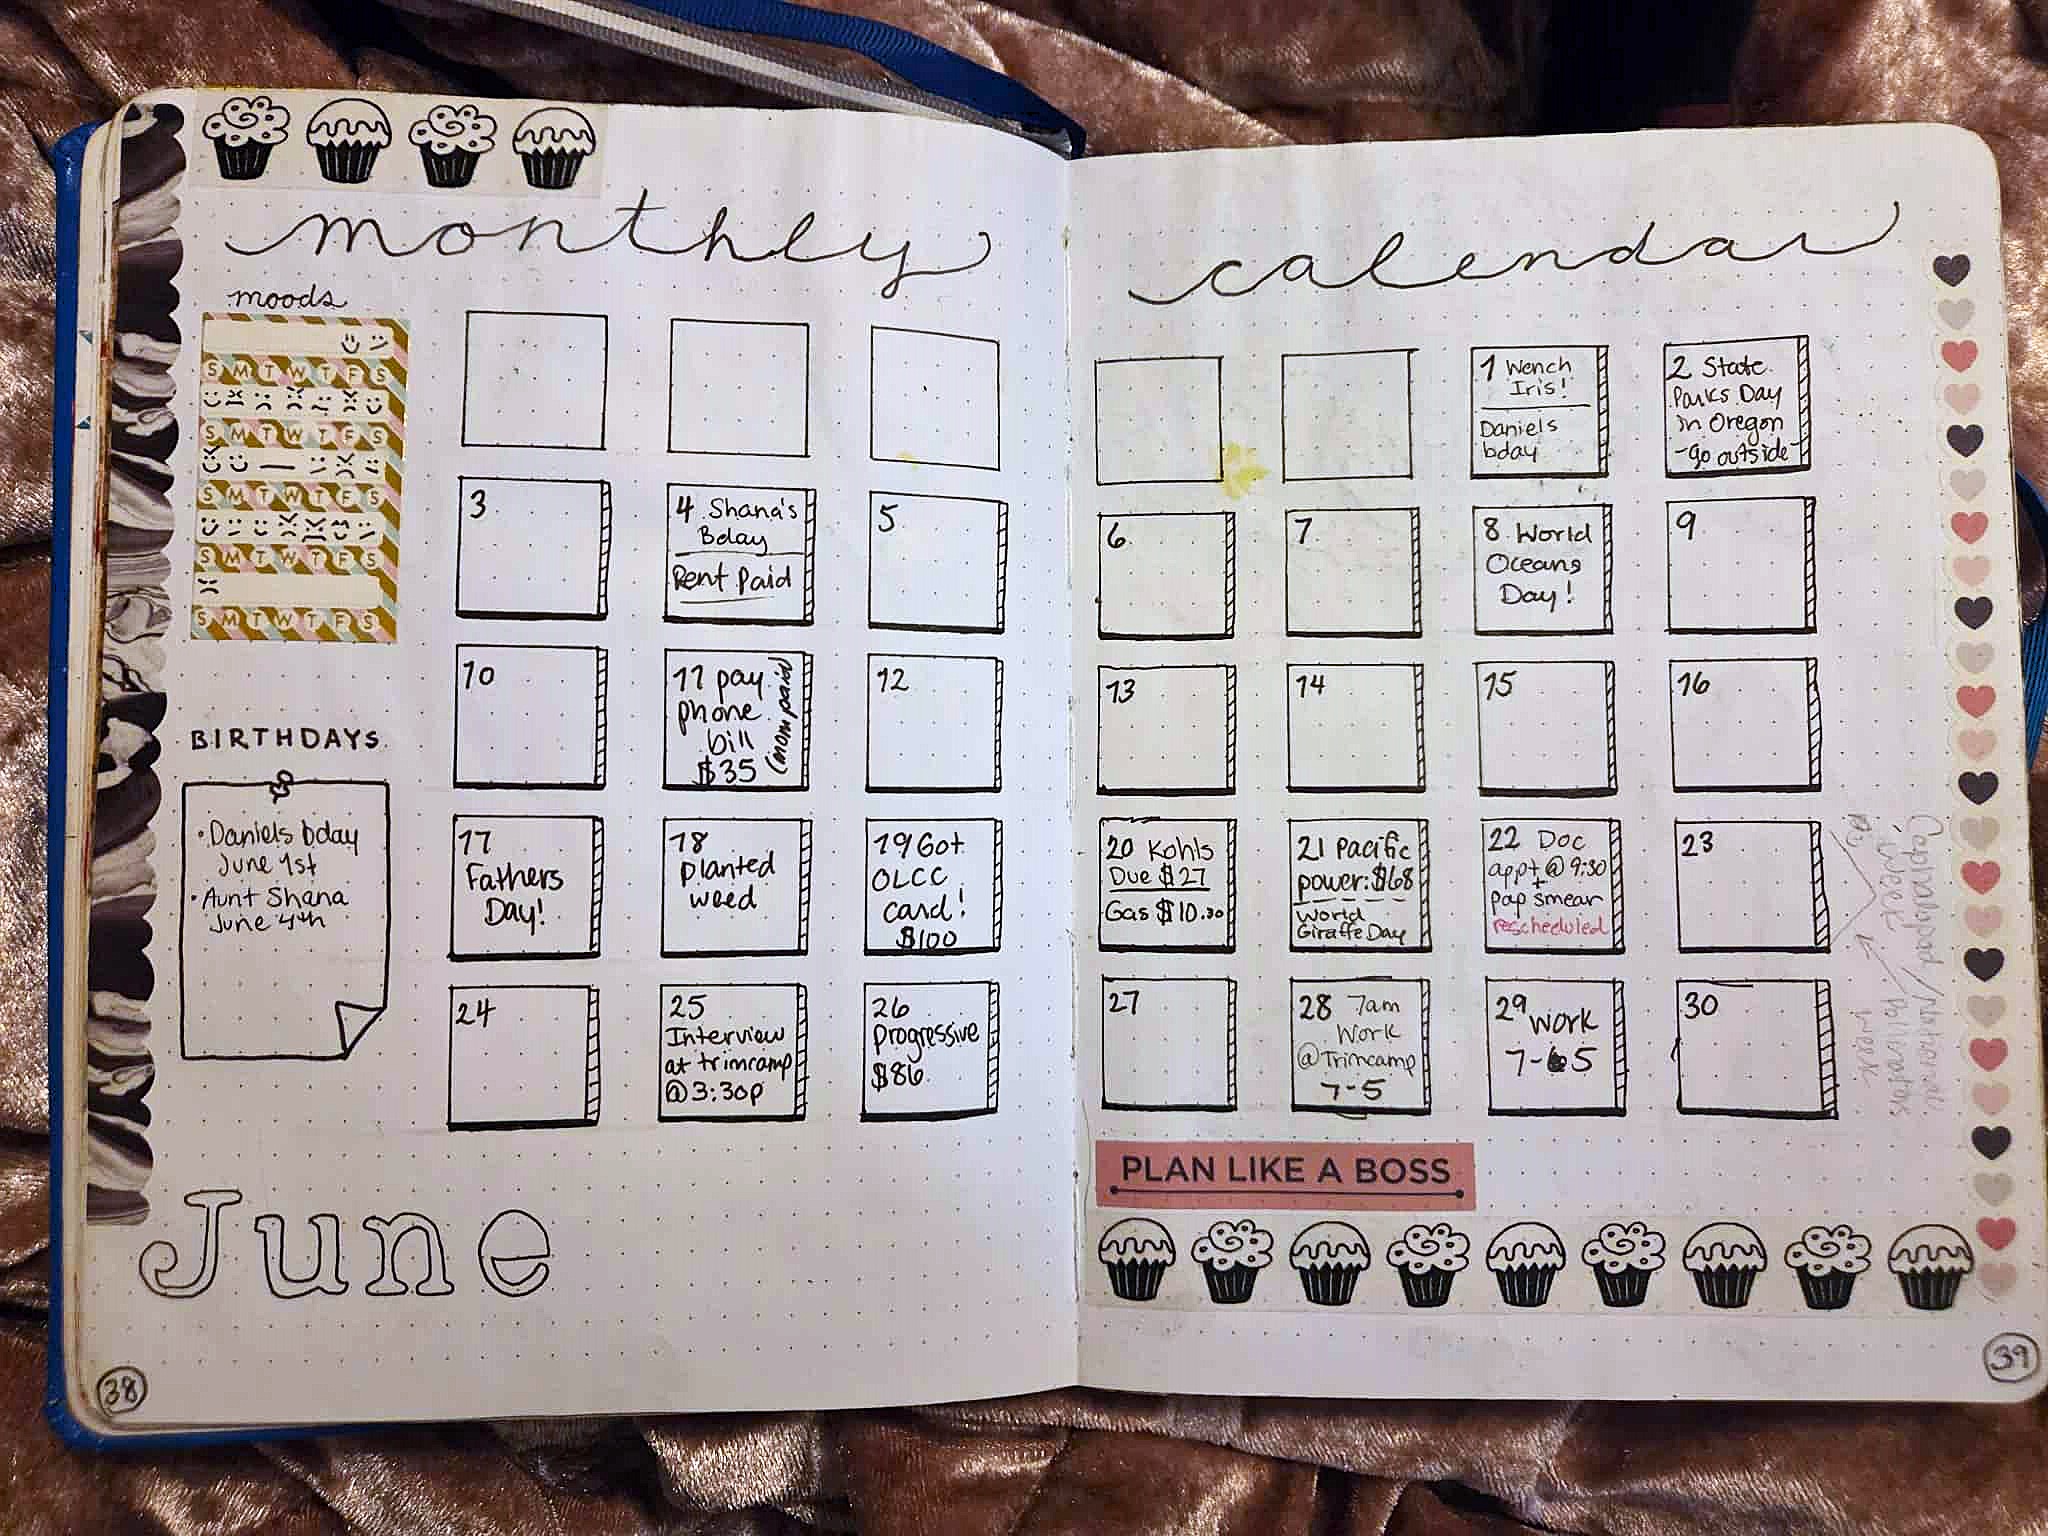 monthly calendar
moods
S M T W T F S
S M T W T F S
S M T W T F S
S M T W T F S
S M T W T F S
BIRTHDAYS
• Daniels bday
June 1st
• Aunt Shana
June 4th
1 Wench
Iris!
Daniels
bday
2 State
Parks Day
in Oregon
-go outside-
3
4 Shana's
Bday
Rent Paid
5
6
7
8 World
Oceans
Day!
9
10
11 pay
phone
bill
$35
(mom paid)
12
13
14
15
16
17
Fathers
Day!
18
planted
weed
19 Got
OLCC
card!
$100
20 Kohls
Due $27
Gas $10.30
21 Pacific
power: $68
World
Giraffe Day
22 Doc
appt @ 9:30
+
pap smear
rescheduled
23
24
25
Interview
at trimcamp
@ 3:30p
26
Progressive
$86
27
28 7am
Work
@Trimcamp
7-5
29 work
7-5
30
National
pollinators
week
June
PLAN LIKE A BOSS
38
39